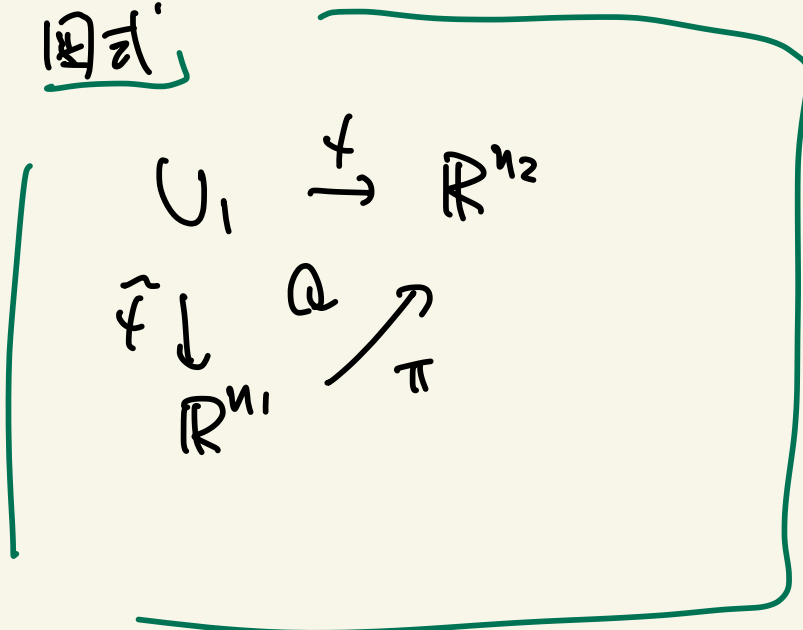 図式
U₁ f → ℝⁿ²
f̃ ↓ Q ↗ π
ℝⁿ¹